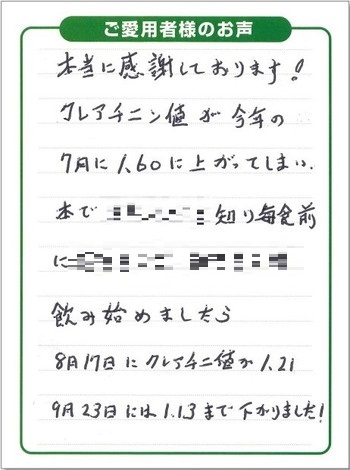 ご愛用者様のお声
本当に感謝しております!
クレアチニン値が今年の
7月に1.60に上がってしまい、
本で 知り毎食前
に
飲み始めましたら
8月17日にクレアチニ値が1.21
9月23日には1.13まで下がりました!